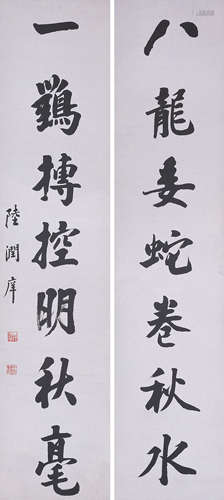 八龍委蛇卷秋水
一鶚搏控明秋毫
陸潤庠